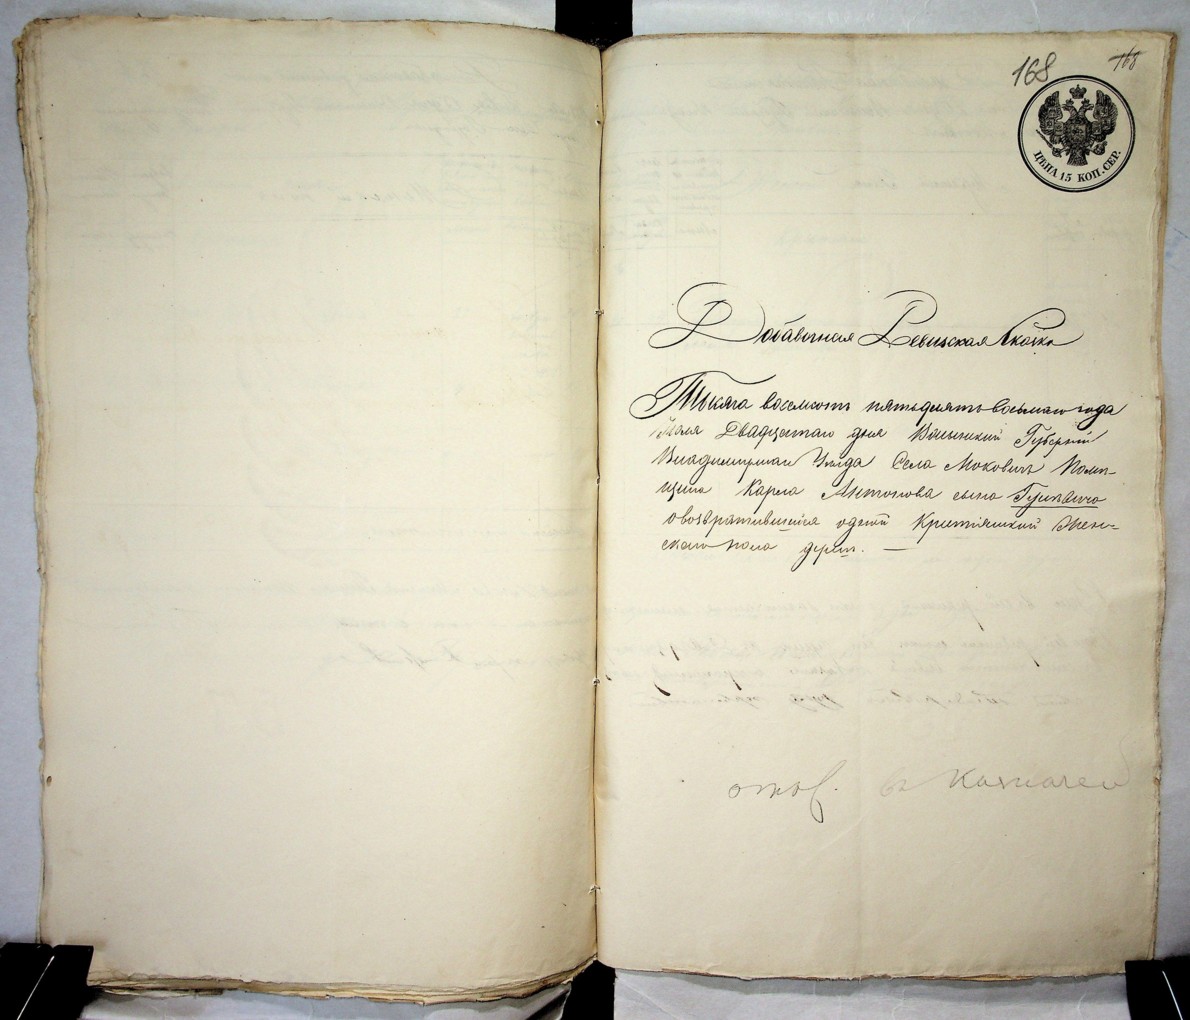 168 168
ЦѢНА 15 КОП. СЕР.
Добавочная Ревизская Скаска
Тысяча восемсотъ пятьдесятъ восьмаго года
двадцатаго дня Волынской Губерніи
Владимирскаго Уѣзда Села Моковичъ Помѣ-
щика Карла Антонова сына
о возвратившейся одной Крестьянской женс-
скаго пола душѣ. —
отъ въ Казначей